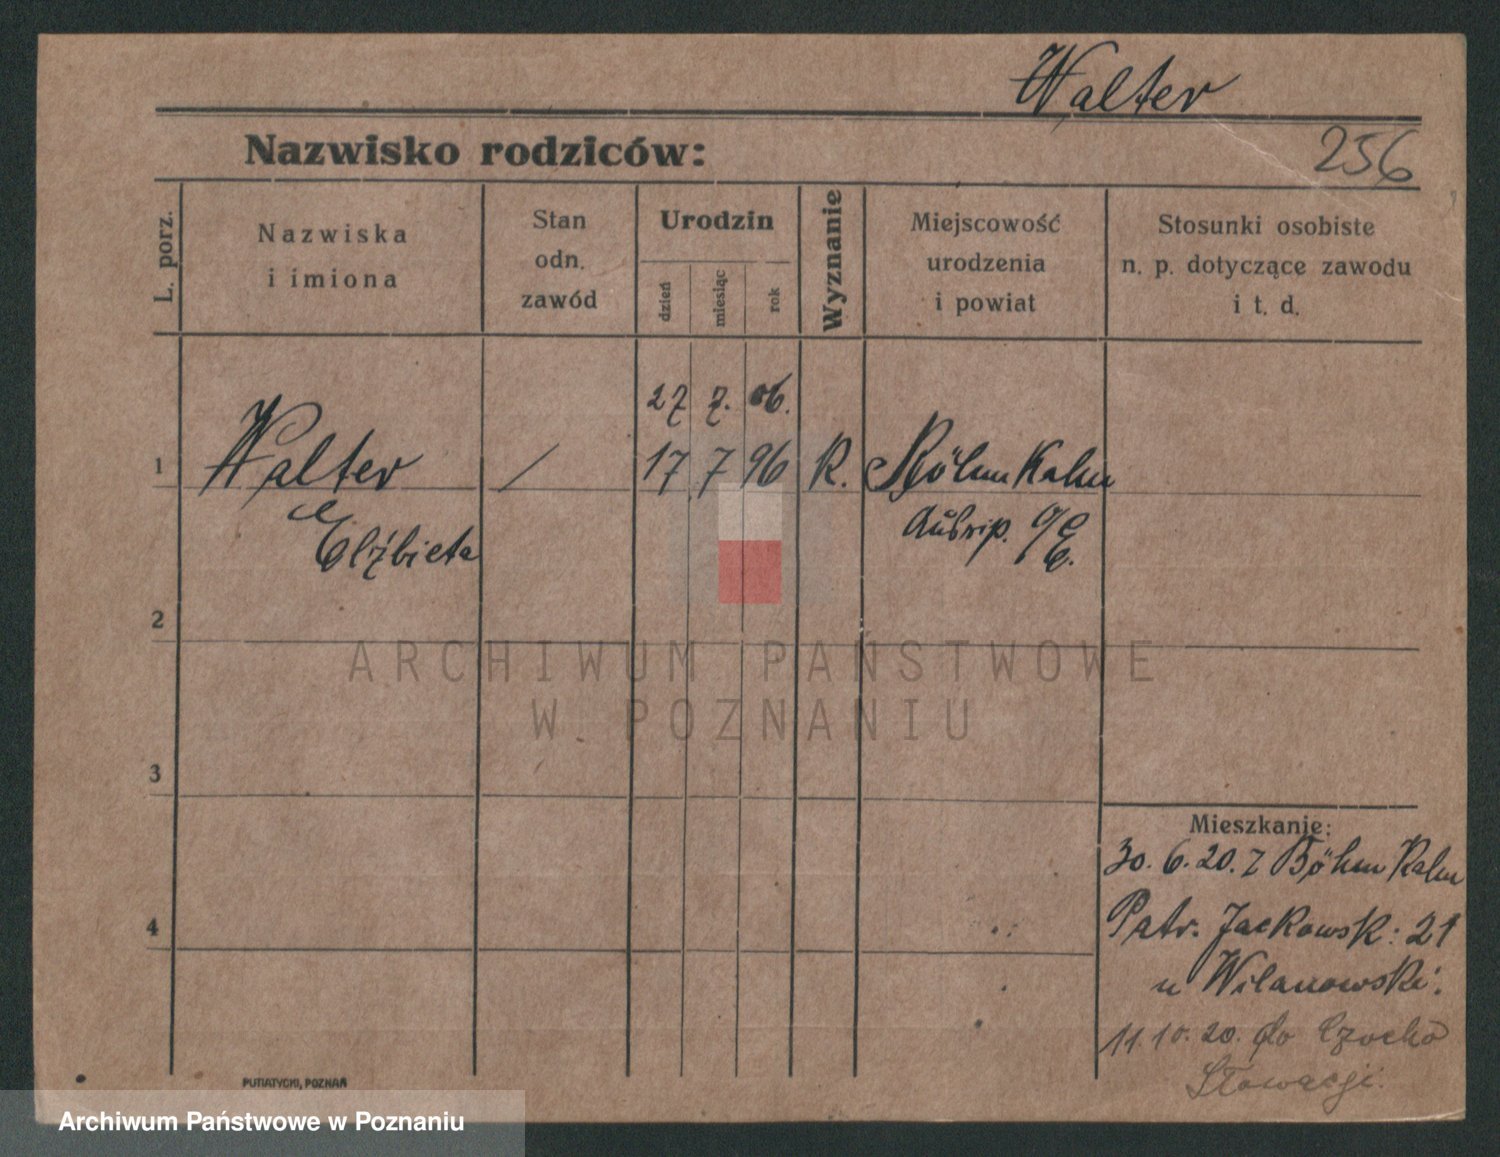 Walter
256
Nazwisko rodziców:
L. porz.
Nazwiska
i imiona
Stan
odn.
zawód
Urodzin
dzień
miesiąc
rok
Wyznanie
Miejscowość
urodzenia
i powiat
Stosunki osobiste
n. p. dotyczące zawodu
i t. d.
27 7. 06.
1 Walter / 17 7 96 R. Böhm Kahn
Elżbieta
2
3
4
Mieszkanie:
30. 6. 20. z Böhm Kahn
Patr. Jackowsk: 21
u Wilanowski.
11.10.20. do Czecho
Słowacji.
PUTIATYCKI, POZNAŃ
ARCHIWUM PAŃSTWOWE
W POZNANIU
Archiwum Państwowe w Poznaniu